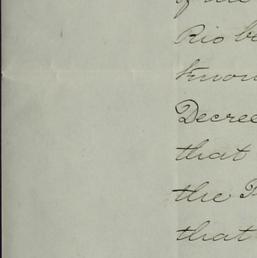 of the
Rio
know
Decree
that
the
that